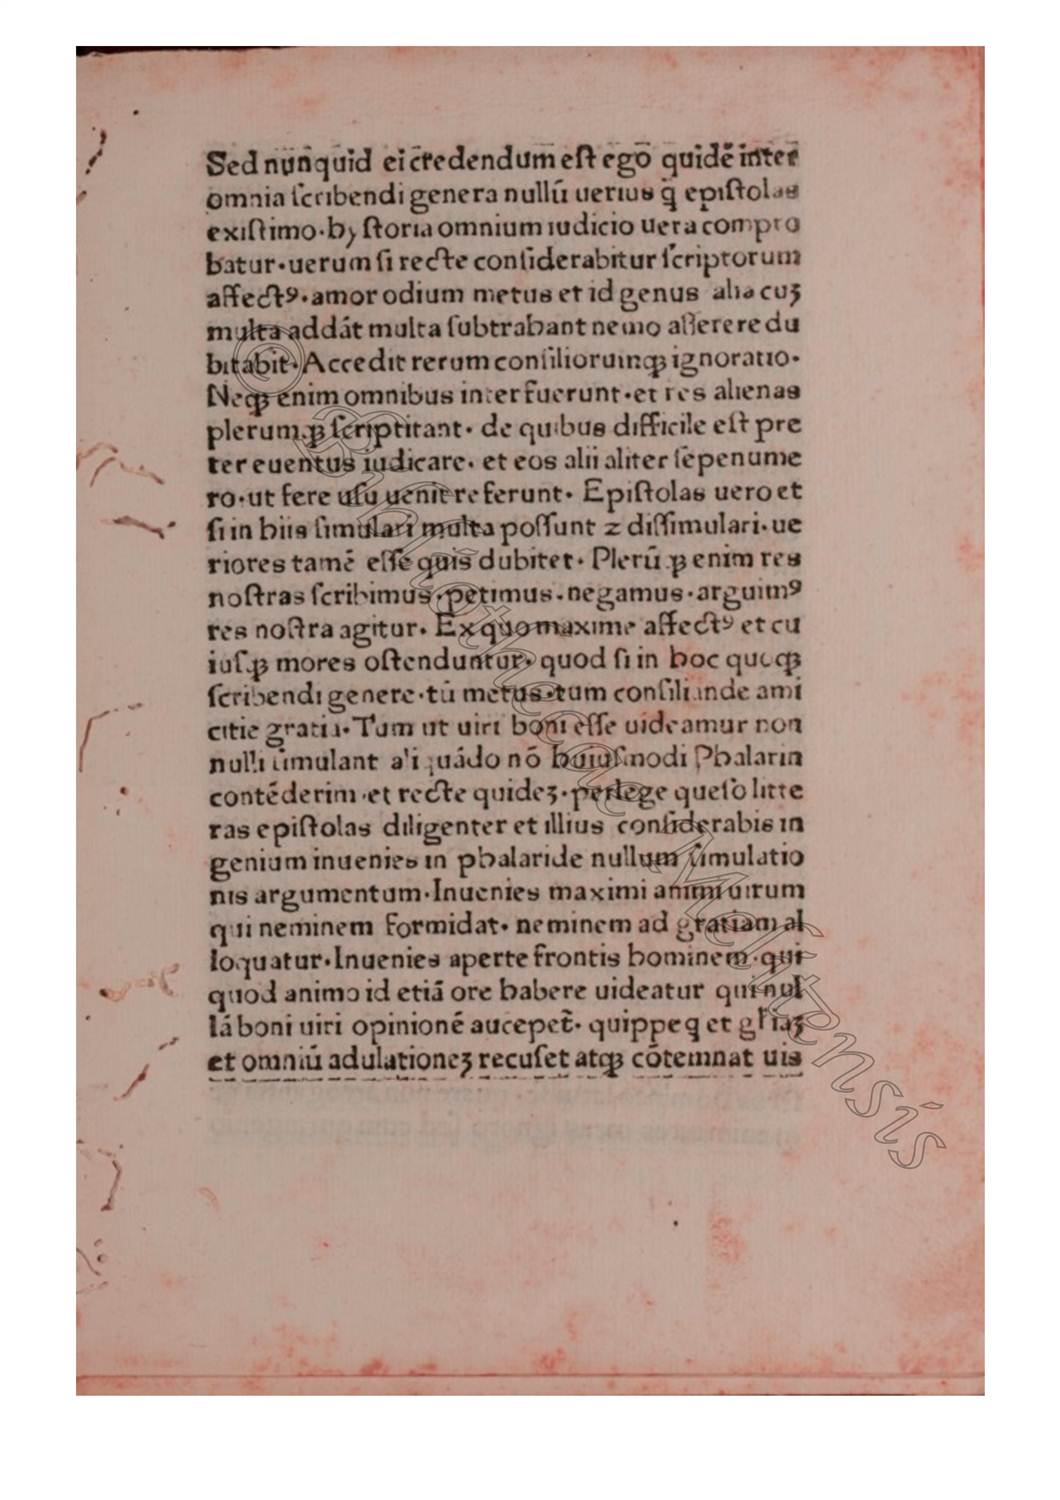 Sed nunquid ei credendum eſt ego quidē inter
omnia ſcribendi genera nullū uerius q̃ epiſtolas
exiſtimo·hyſtoria omnium iudicio uera compro
batur·uerum ſi recte conſiderabitur ſcriptorum
affectꝰ·amor odium metus et id genus alia cuꝫ
multa addāt multa ſubtrahant nemo aſſerere du
bitabit·Accedit rerum conſiliorumqꝫ ignoratio·
Neqꝫ enim omnibus interfuerunt·et res alienas
plerumqꝫ ſcriptitant· de quibus difficile eſt pre
ter euentus iudicare· et eos alii aliter ſepenume
ro·ut fere uſu uenit referunt· Epiſtolas uero et
ſi in hiis ſimulari multa poſſunt ꝛ diſſimulari·ue
riores tamē eſſe quis dubitet· Plerūqꝫ enim res
noſtras ſcribimus·petimus·negamus·arguimꝰ
res noſtra agitur· Ex quo maxime affectꝰ et cu
iuſqꝫ mores oſtenduntur· quod ſi in hoc quoqꝫ
ſcribendi genere·tū metus·tum conſilii unde ami
citie gratia·Tum ut uiri boni eſſe uideamur non
nulli ſimulant aliquādo nō huiuſmodi Phalarin
contēderim·et recte quideꝫ·perlege queſo litte
ras epiſtolas diligenter et illius conſiderabis in
genium inuenies in phalaride nullum ſimulatio
nis argumentum·Inuenies maximi animi uirum
qui neminem formidat· neminem ad gratiam al
loquatur·Inuenies aperte frontis hominem·qui
quod animo id etiā ore habere uideatur qui nul
lā boni uiri opinionē aucepet̄· quippe q et gl̄iaꝫ
et omniū adulationeꝫ recuſet atqꝫ cōtemnat uis